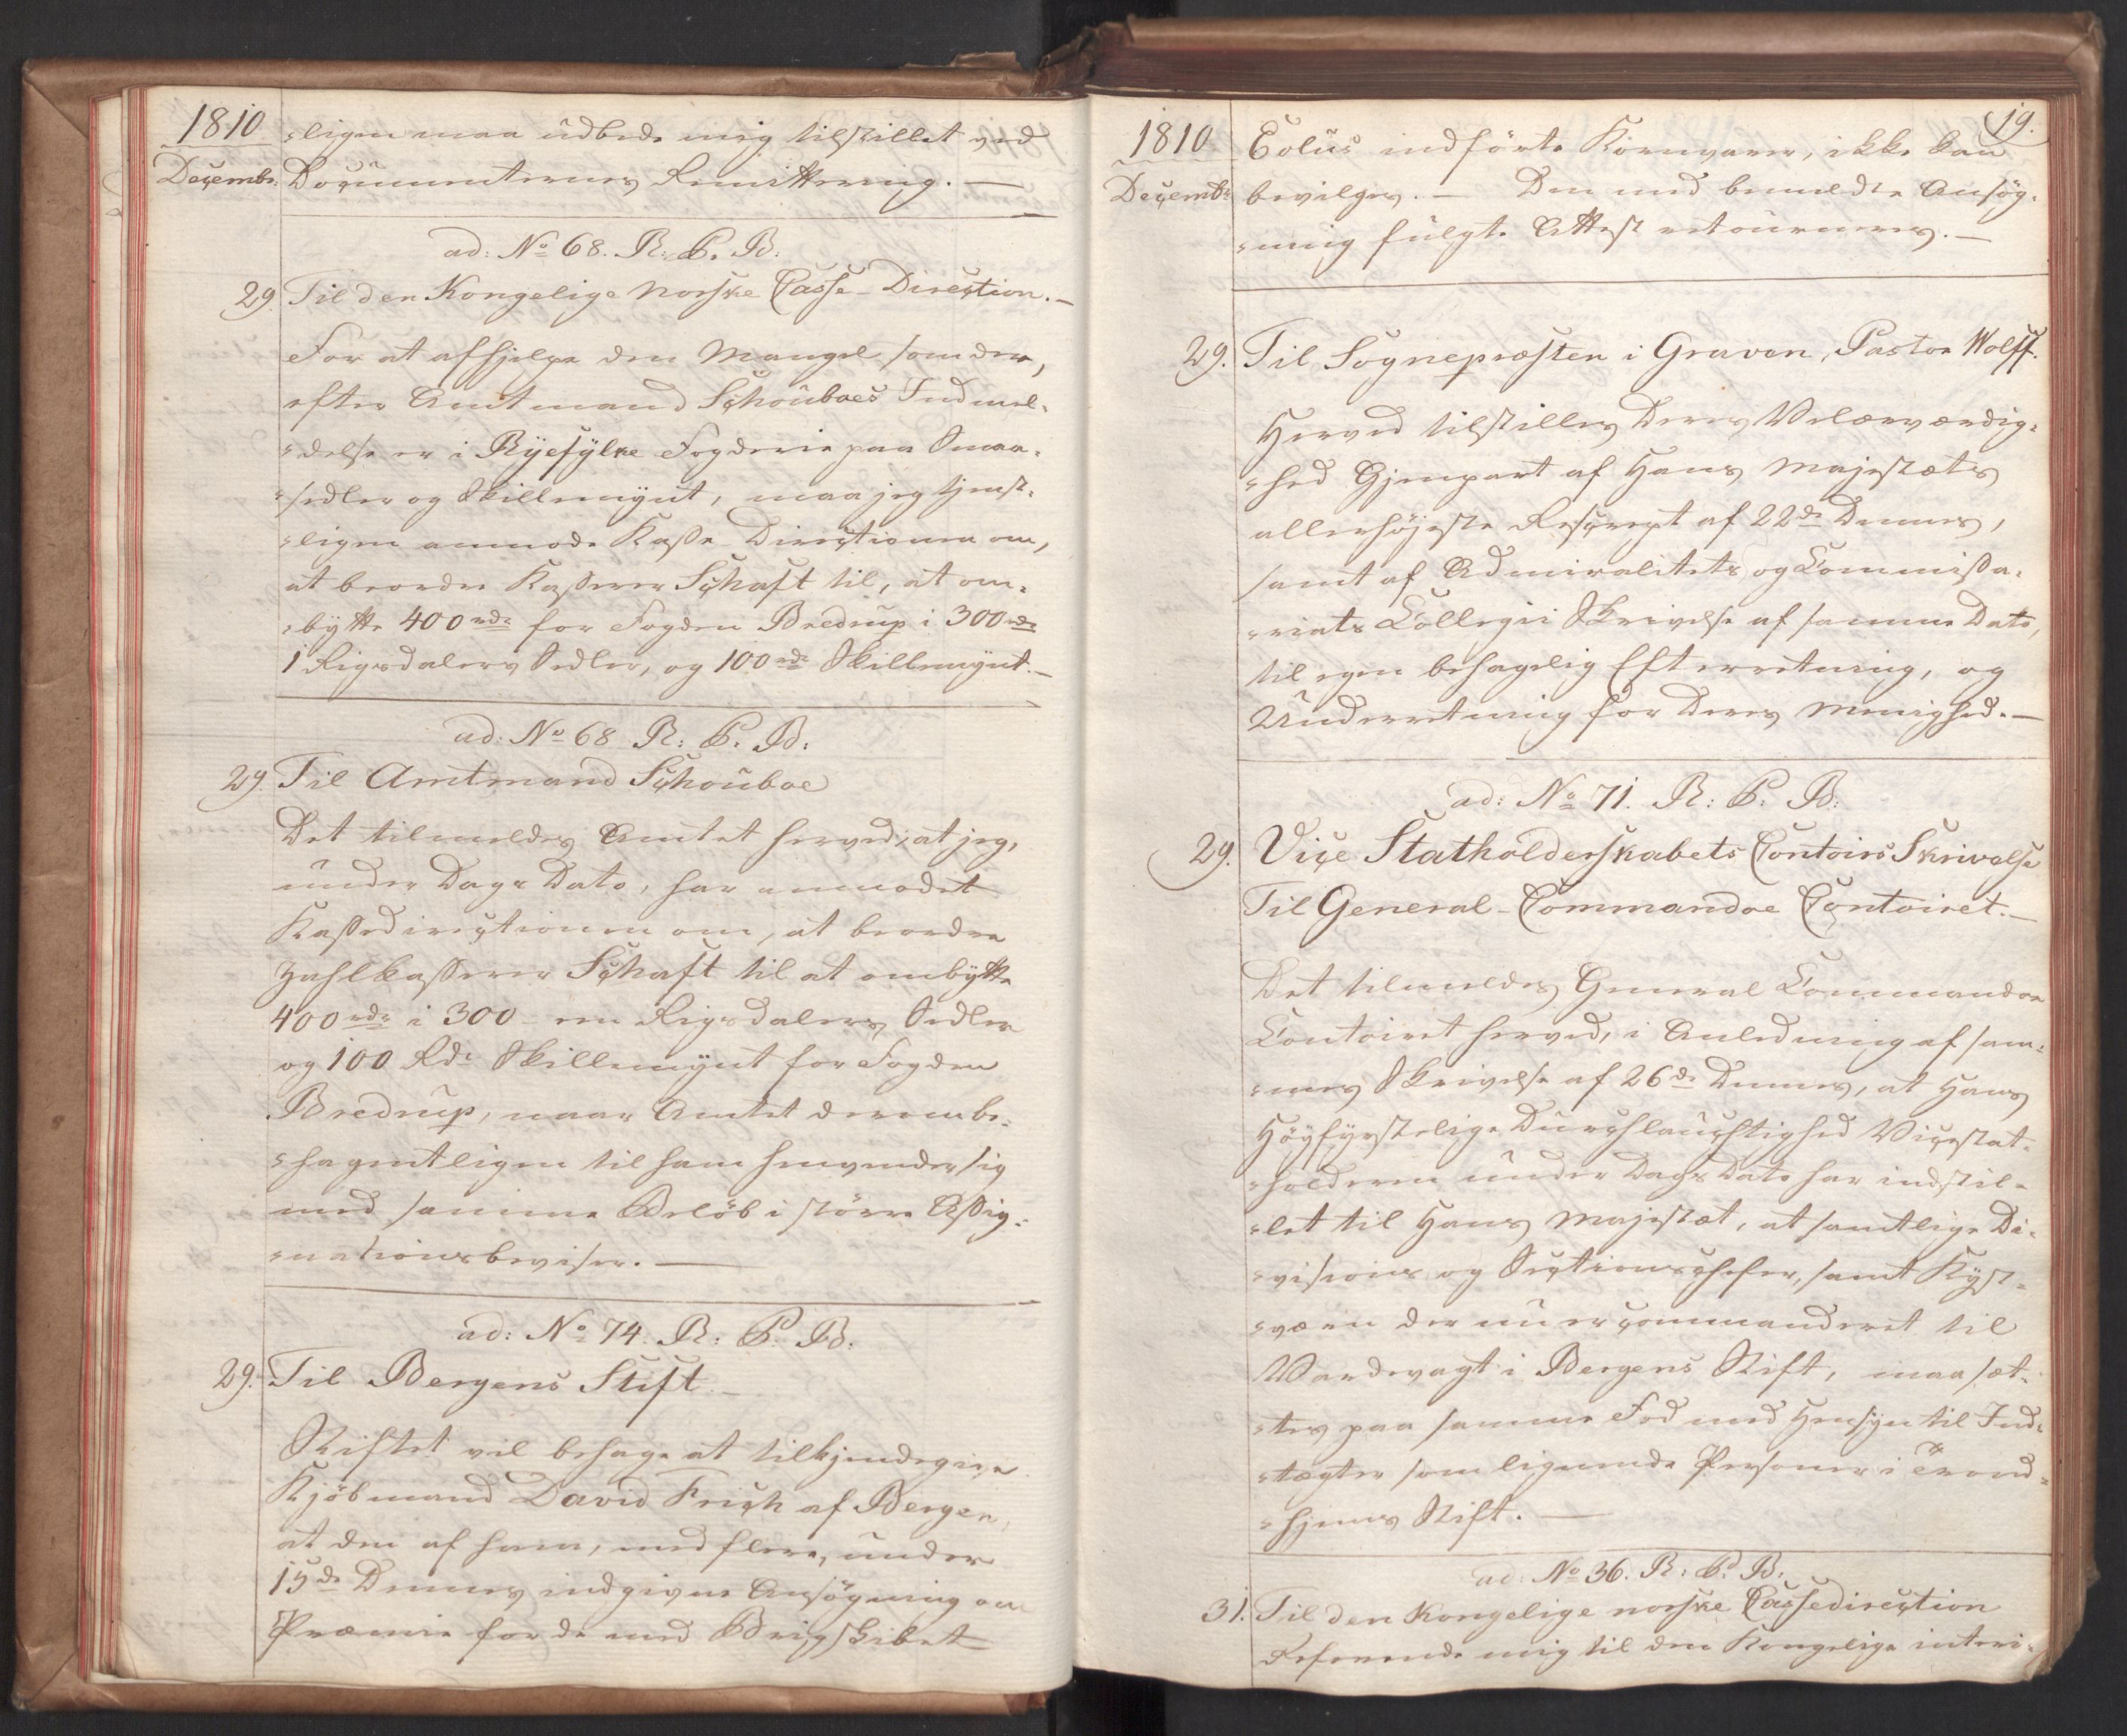 1810
Decembr:
-ligen maa udbede mig tilstillet ved
Documenternes Remittering. —
ad: No 68. R: C. B:
29. Til den Kongelige norske Casse-Direction. —
For at afhjelpe den Mangel, som der,
efter Amtmand Schouboes Indmel-
-delse er i Ryefylke Fogderie paa Smaa-
-sedler og Skillemynt, maa jeg tjenst-
-ligen anmode Kasse Directionen om,
at beordre Kasserer Schaft til, at om-
-bytte 400 rdr for Fogden Bredrup i 300 rdr
1 Rigsdalers Sedler, og 100 rdr Skillemynt. —
ad: No 68 R: C. B:
29. Til Amtmand Schouboe
Det tilmeldes Amtet herved, at jeg,
under Dags Dato, har anmodet
Kassedirectionen om, at beordre
Zahlkasserer Schaft til at ombytte
400 rdr i 300 - een Rigsdalers Sedler
og 100 Rdr Skillemynt for Fogden
Bredrup, naar Amtet derom be-
-hagentligen til ham henvender sig
med samme Beløb i større Assig-
-nationsbeviser. —
ad: No 74. R: C. B:
29. Til Bergens Stift —
Stiftet vil behage at tilkjendegive
Kjöbmand David Frich af Bergen,
at den af ham, med flere, under
15de Dennes indgivne Ansögning om
Præmie for de med Brigskibet
19.
1810
Decembr
Eolus indförte Kornvarer, ikke kan
bevilges. — Den med bemeldte Ansög-
-ning fulgte Attest retourneres. —
29. Til Sognepræsten i Graven, Pastor Wolff.
Herved tilstilles Deres Velærværdig-
-hed Gjenpart af Hans Majestæts
allerhöjeste Rescript af 22de Dennes,
samt af Admiralitets og Commissa-
-riats Collegii Skrivelse af samme Dato,
til egen behagelig Efterretning, og
Underretning for Deres Menighed. —
ad: No 71. R: C. B:
29. Vice Statholderskabets Contoirs Skrivelse
Til General-Commandoe Contoiret. —
Det tilmeldes General Commandoe
Contoiret herved, i Anledning af sam-
-mes Skrivelse af 26de Dennes, at Hans
Höyfyrstelige Durchlauchtighed Vicestat-
-holderen under Dags Dato har indstil-
-let til Hans Majestæt, at samtlige Di-
-visions og Sectionschefer, samt Kyst-
-værn der nu er commanderet til
Vardevagt i Bergens Stift, maa sæt-
-tes paa samme Fod med Hensyn til Ind-
-tægter som lignende Personer i Trond-
-hjems Stift. —
ad: No 36. R: C. B:
31. Til den Kongelige norske Cassedirection
Refererende mig til den Kongelige interi-